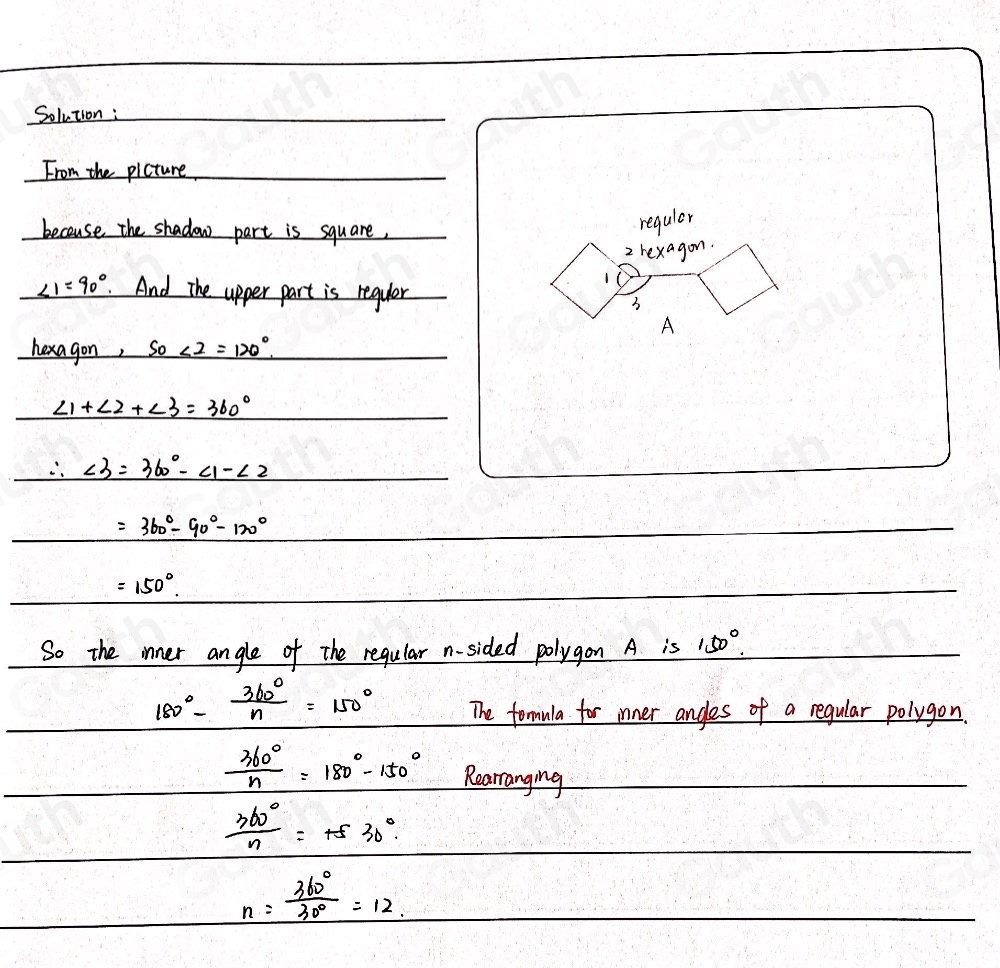 Solution:
From the picture.
because the shadow part is square,
∠1=90°. And the upper part is regular
hexagon, so ∠2 = 120°.
∠1+∠2+∠3=360°
∴ ∠3=360°-∠1-∠2
=360°-90°-120°
=150°.
regular
2 hexagon.
1
3
A
So the inner angle of the regular n-sided polygon A is 150°.
180° - 360°/n = 150° The formula for inner angles of a regular polygon.
360°/n = 180°-150° Rearranging
360°/n = 30°.
n = 360°/30° = 12.
Gauth